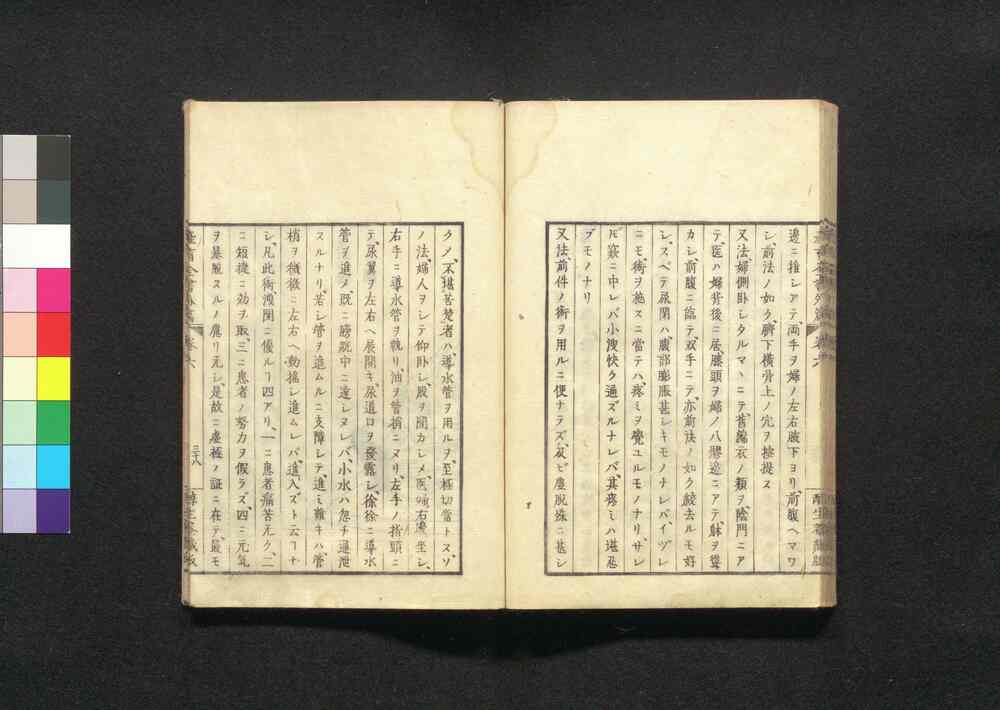 邊ニ推シアテ、両手ヲ婦ノ左右腋下ヨリ、前腹ヘマワ
シ、前法ノ如ク、臍下横骨上ノ穴ヲ按提ス
又法、婦側臥シタルマヽニテ、舊綿衣ノ類ヲ陰門ニア
テ、医ハ婦背後ニ居、膝頭ヲ婦ノ八髎邉ニアテ、躰ヲ聳
カシ、前腹ニ臨テ、双手ニテ、亦前法ノ如ク餃去ルモ好
シ、スベテ尿閉ハ、腹部膨脹甚シキモノナレバ、イヅレ
ニモ、術ヲ施スニ當テハ、疼ミヲ覺ユルモノナリ、サレ
𪜈、竅ニ中レバ小溲快ク通ズルナレバ、其疼ミハ堪忍
ブモノナリ
又法、前件ノ術ヲ用ルニ便ナラズ、及ビ塵脱殊ニ甚シ
クノ、不堪苦楚者ハ、導水管ヲ用ルヲ、至極切當トスソ、
ノ法、婦人ヲシテ仰臥シ、股ヲ開カシメ、医 右邊 坐シ、
右手ニ導水管ヲ執リ、油ヲ管梢ニヌリ、左手ノ指頭ニ
テ、尿翼ヲ左右ヘ展開キ、尿道口ヲ發露シ、徐徐ニ導水
管ヲ進メ、既ニ膀胱中ニ達シヌレバ、小水ハ忽チ通泄
スルナリ、若シ管ヲ進ムルニ支障シテ、進ミ難キハ、管
梢ヲ微微ニ左右ヘ動搖シ進ムレバ、進入ズト云ヿナ
シ、凡此術、溲閉ニ優ルヿ四アリ、一ニ患者痛苦无ク、二
ニ短捷ニ効ヲ取、三ニ患者ノ努力ヲ假ラズ、四ニ元気
ヲ暴脱スルノ慮リ元シ、是故ニ虚極ノ証ニ在テ、最モ
三十八